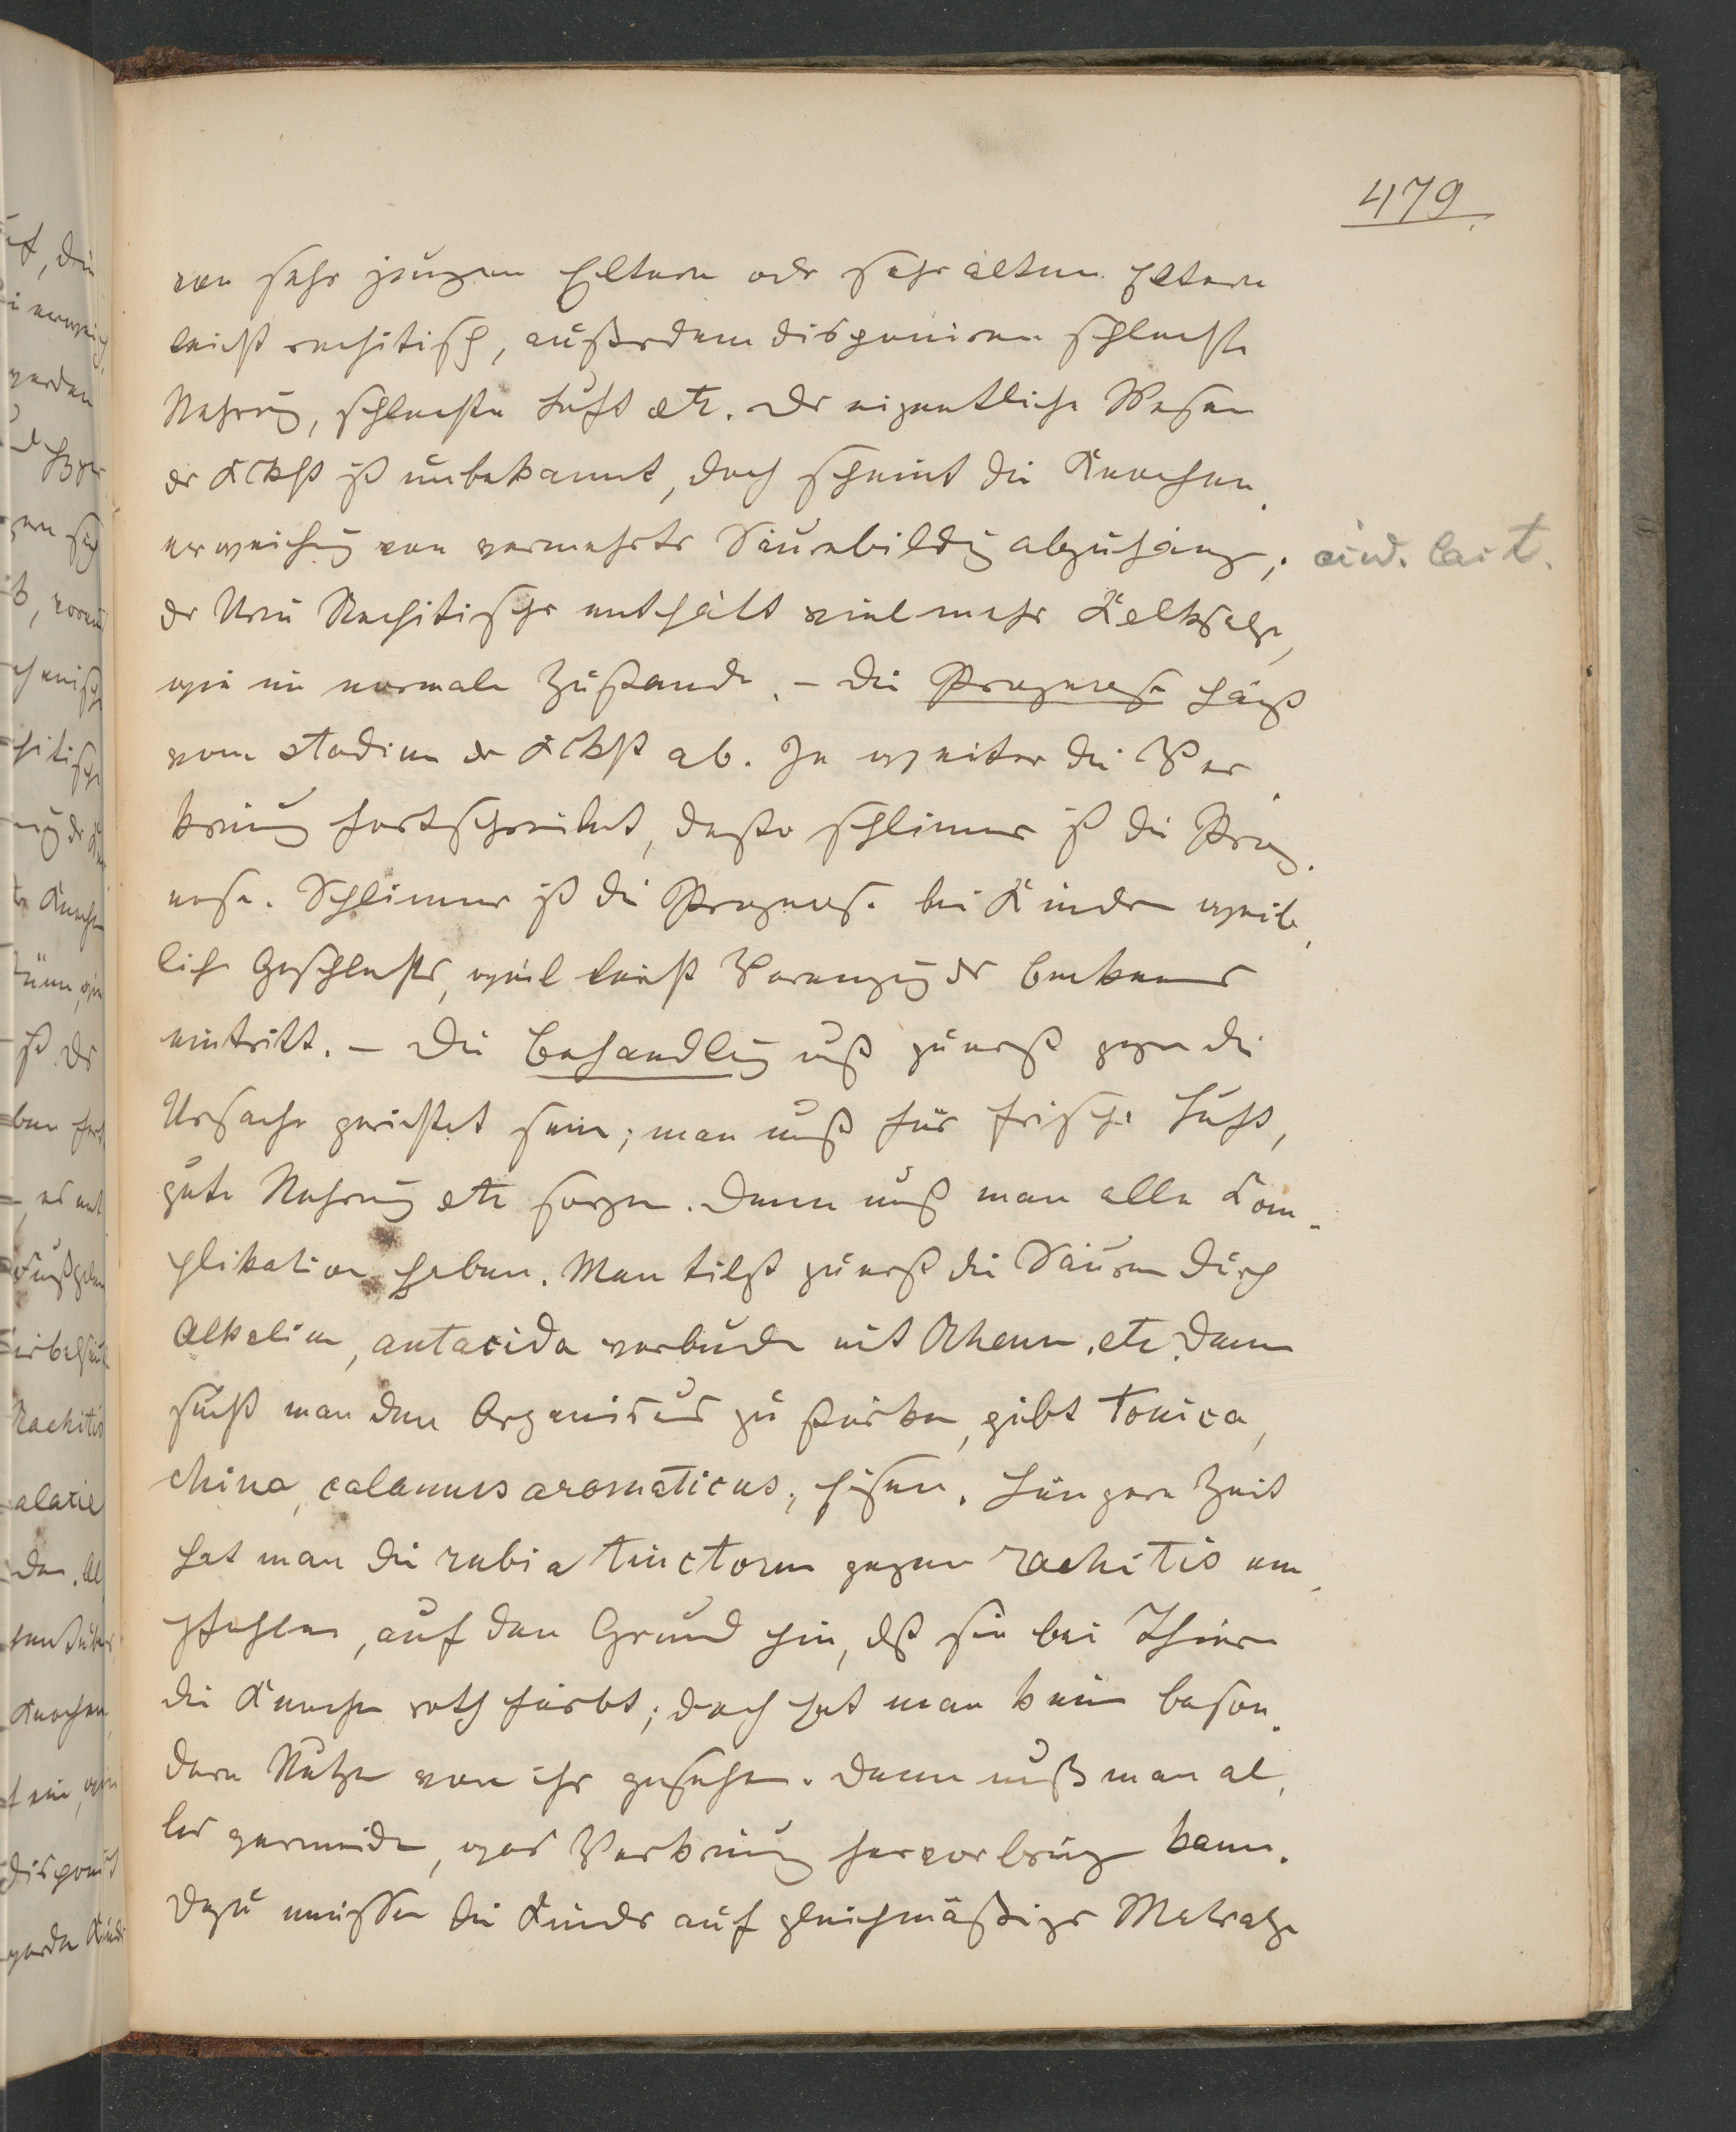 479.
von sehr jungen Eltern oder sehr alten Eltern
leicht rachitisch, außerdem disponiren schlechte
Nahrung, schlechte Luft etc. Das eigentliche Wesen
der Krkht ist unbekannt, doch scheint die Knochen-
erweichung von vermehrter Säurebildung abzuhängen; acid. lact.
der Urin Rachitischer enthält viel mehr Kalksalze,
wie im normalen Zustande. – Die Prognose hängt
vom Stadium der Krkht ab. Je weiter die Ver-
krümung fortschreitet, desto schlimmer ist die Prog-
nose. Schlimmer ist die Prognose bei Kindern weib-
lichen Geschlechts, weil leicht Verengung des Beckens
eintritt. – Die Behandlung muß zuerst gegen die
Ursache gerichtet sein; man muß für frische Luft,
gute Nahrung etc sorgen. Dann muß man alle Com-
plikationen heben. Man tilgt zuerst die Säuren durch
Alkalien, antacida verbunden mit Rheum. etc. Dann
sucht man den Organismus zu stärken, gibt Tonica,
china, calamus aromaticus, Eisen. Längere Zeit
hat man die rubia tinctorum gegen rachitis em-
pfohlen, auf den Grund hin, dß sie bei Thieren
die Knochen roth färbt; doch hat man keinen beson-
dern Nutzen von ihr gesehen. Dann muß man al-
les vermeiden, was Verkrümung hervorbringen kann.
Dazu müssen die Kinder auf gleichmäßiger Matratze